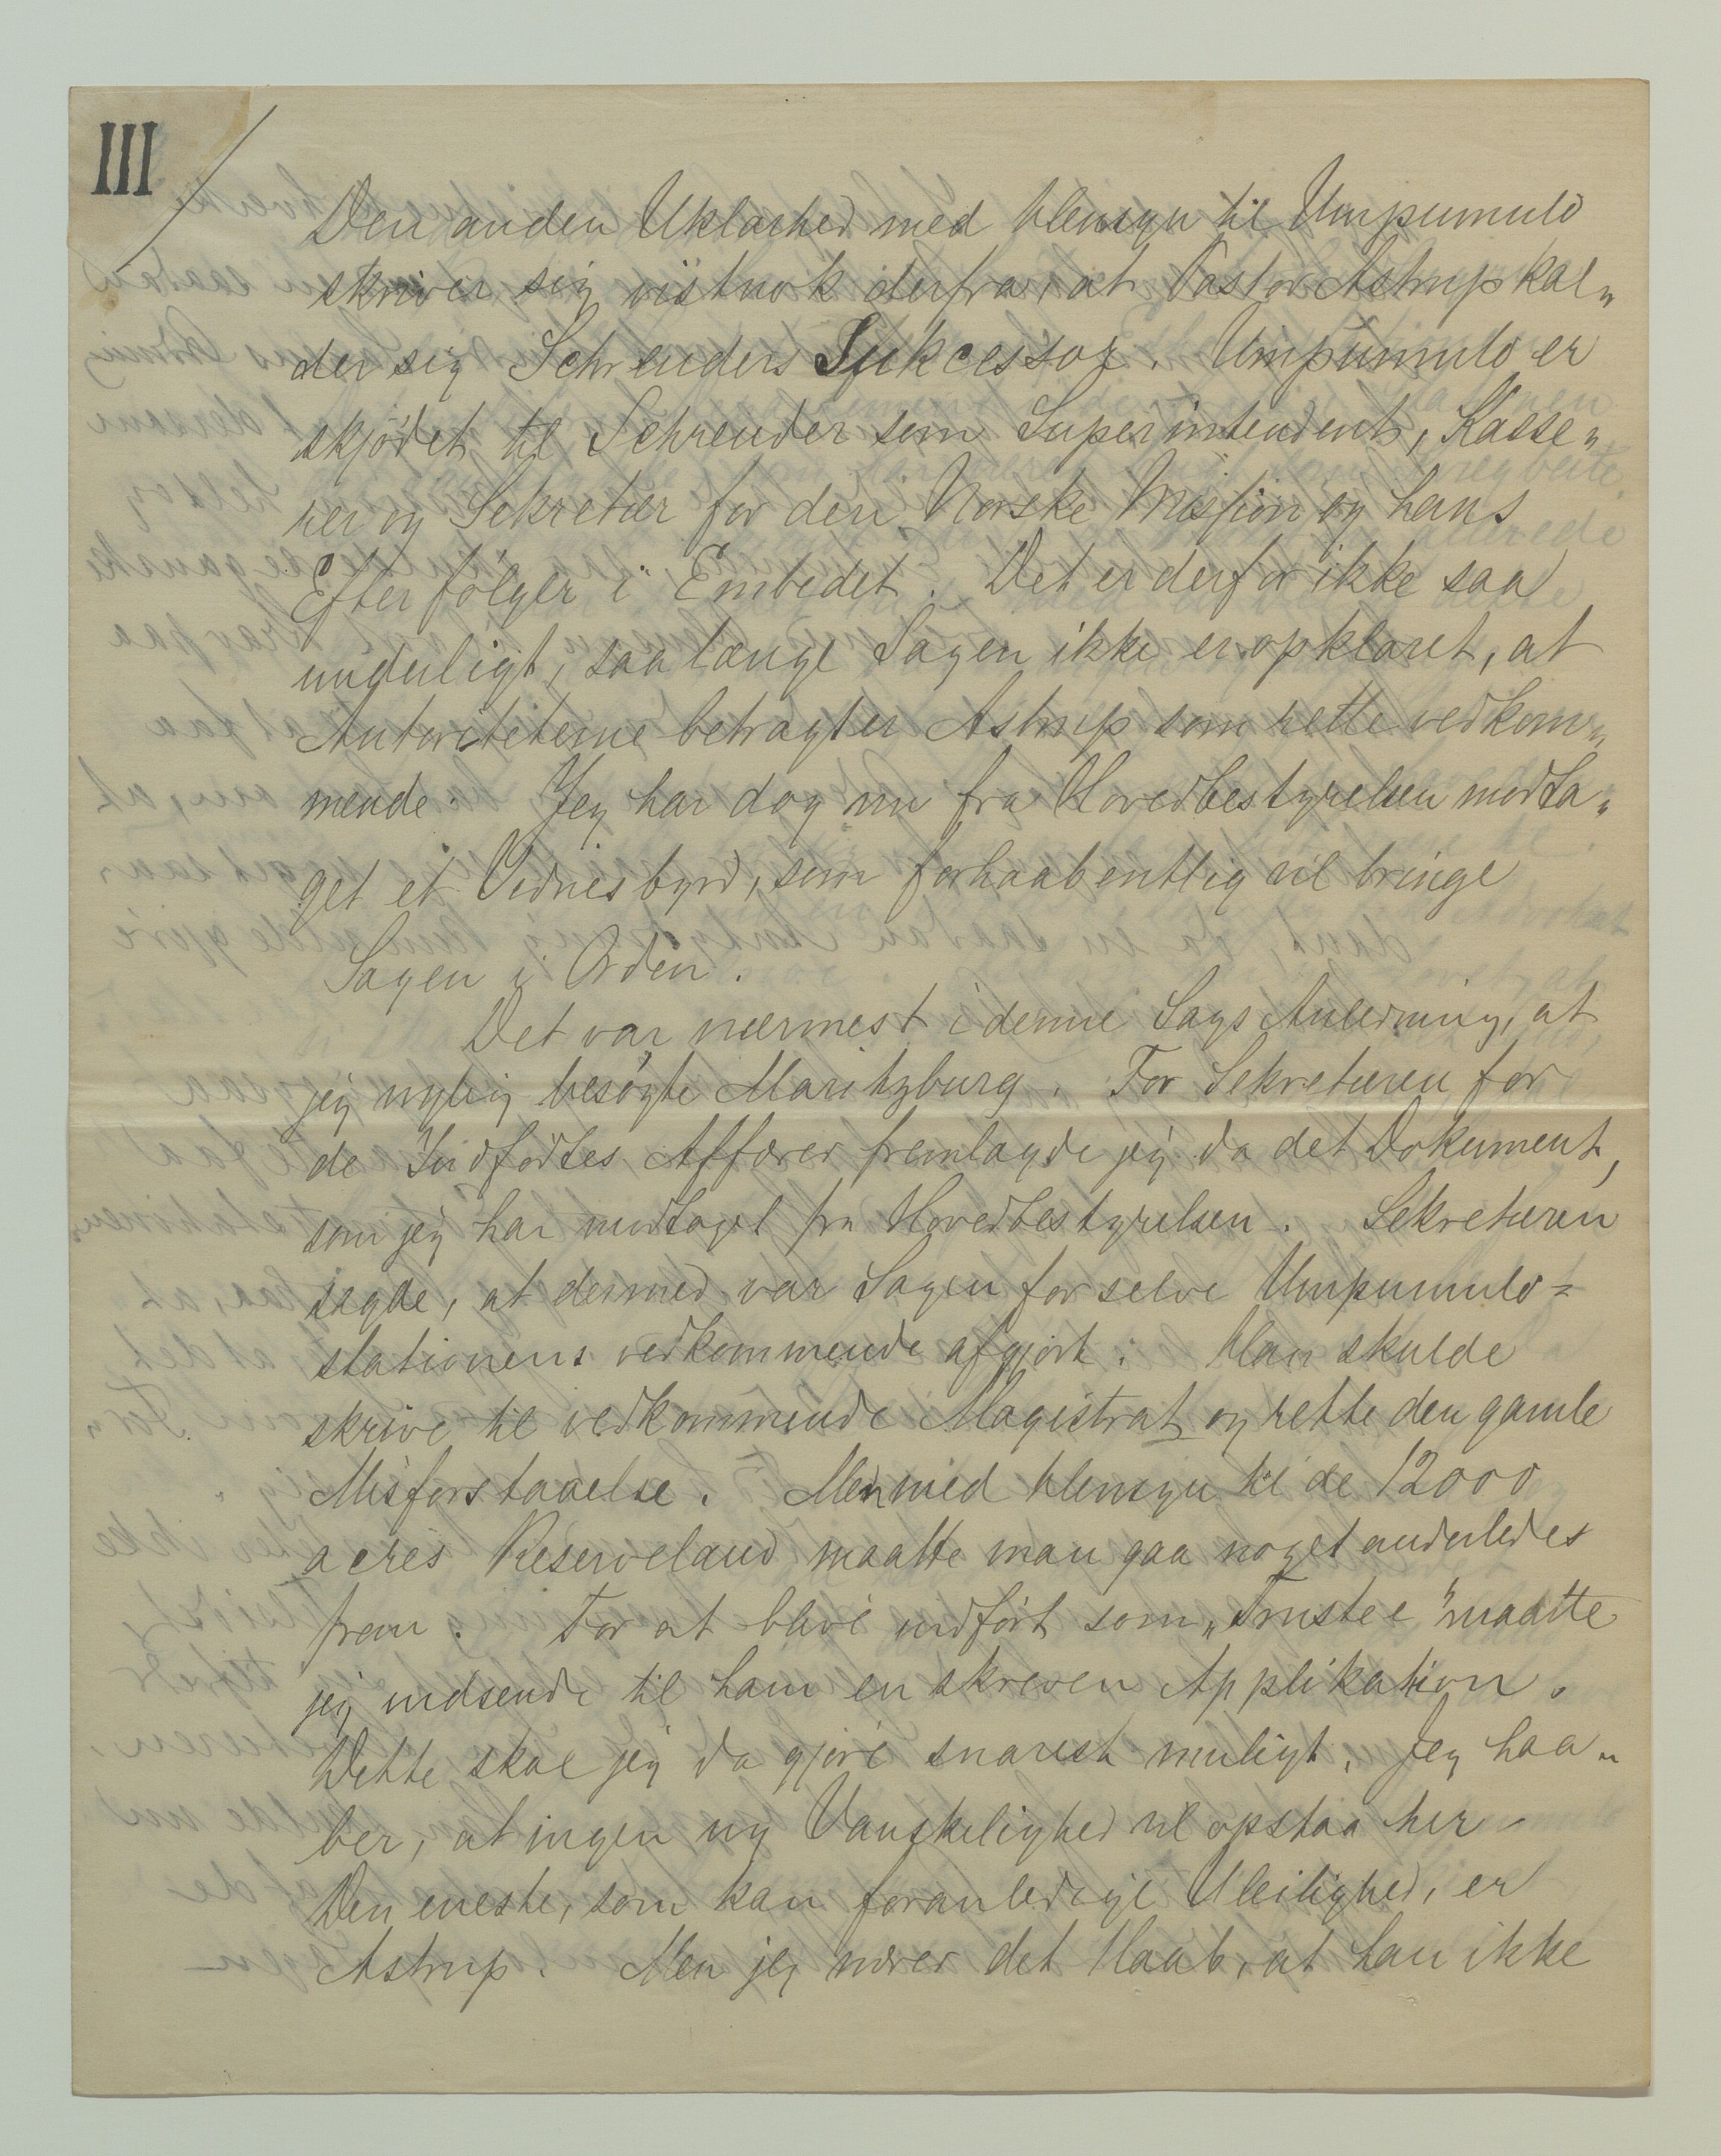 III
Den anden Uklarhed med Hensyn til Umpumulo
skriver sig vistnok derfra, at Pastor Astrup kal„
der sig Schreuders Sukcessor. Umpumulo er
skjödet til Schreuder som Superintendent, Kasse„
rer og Sekretær for den Norske Mission og hans
Efterfölger i Embedet. Det er derfor ikke saa
underligt, saalænge Sagen ikke er opklaret, at
Autoriteterne betragter Astrup som rette vedkom„
mende. Jeg har dog nu fra Hovedbestyrelsen modta„
get et Vidnesbyrd, som forhaabentlig vil bringe
Sagen i Orden.
Det var nærmest i denne Sags Anledning, at
jeg nylig besögte Maritzburg. For Sekretæren for
de Indfödtes Affærer fremlagde jeg da det Dokument,
som jeg har modtaget fra Hovedbestyrelsen. Sekretæren
sagde, at dermed var Sagen for selve Umpumulo=
stationens vedkommende afgjort: Han skulde
skrive til vedkommende Magistrat og rette den gamle
Misforstaaelse. Men med Hensyn til de 12000
acres Reserveland maatte man gaa noget anderledes
frem. For at blive indfört som „Trustee" maatte
jeg indsende til ham en skreven Applikation.
Dette skal jeg da gjöre snarest muligt. Jeg haa„
ber, at ingen ny Vanskelighed vil opstaa her.
Den eneste, som kan foranledige Uleilighed, er
Astrup. Men jeg nærer det Haab, at han ikke